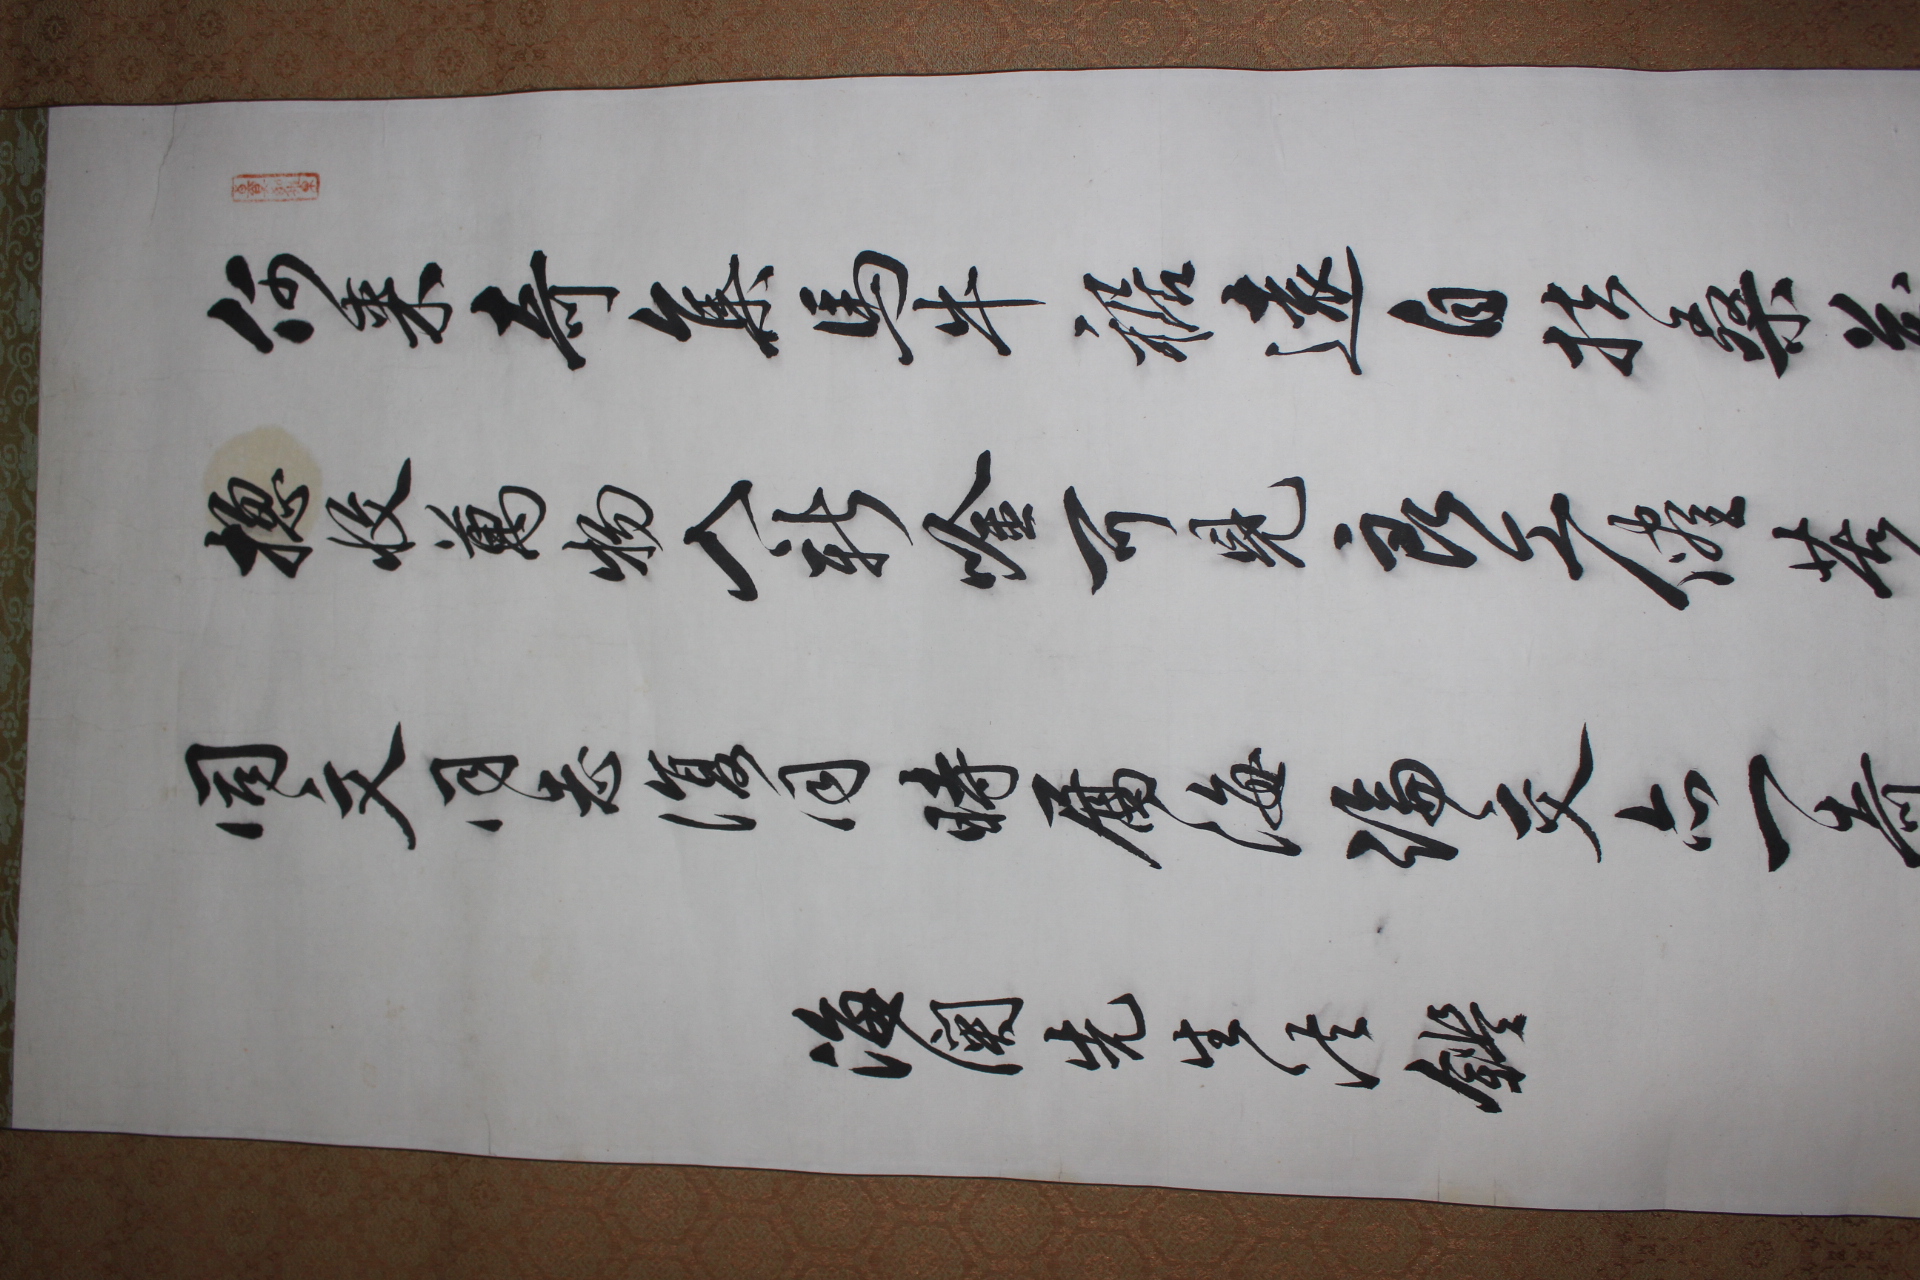 何来奇集馬牛裾遠自扶桑
揔收萬物入新唫可見良工儘苦
同文同志復同時屬海論交亦一奇
海関先生法鑑